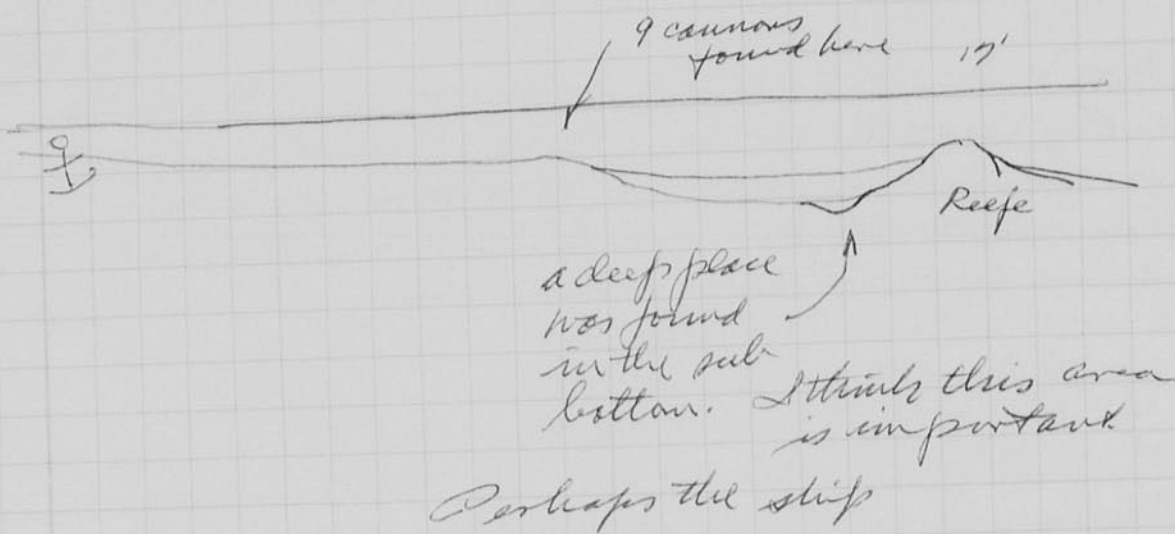 9 cannons
found here 17'
Reefe
a deep place
was found
in the sub
bottom. I think this area
is important
Perhaps the ship